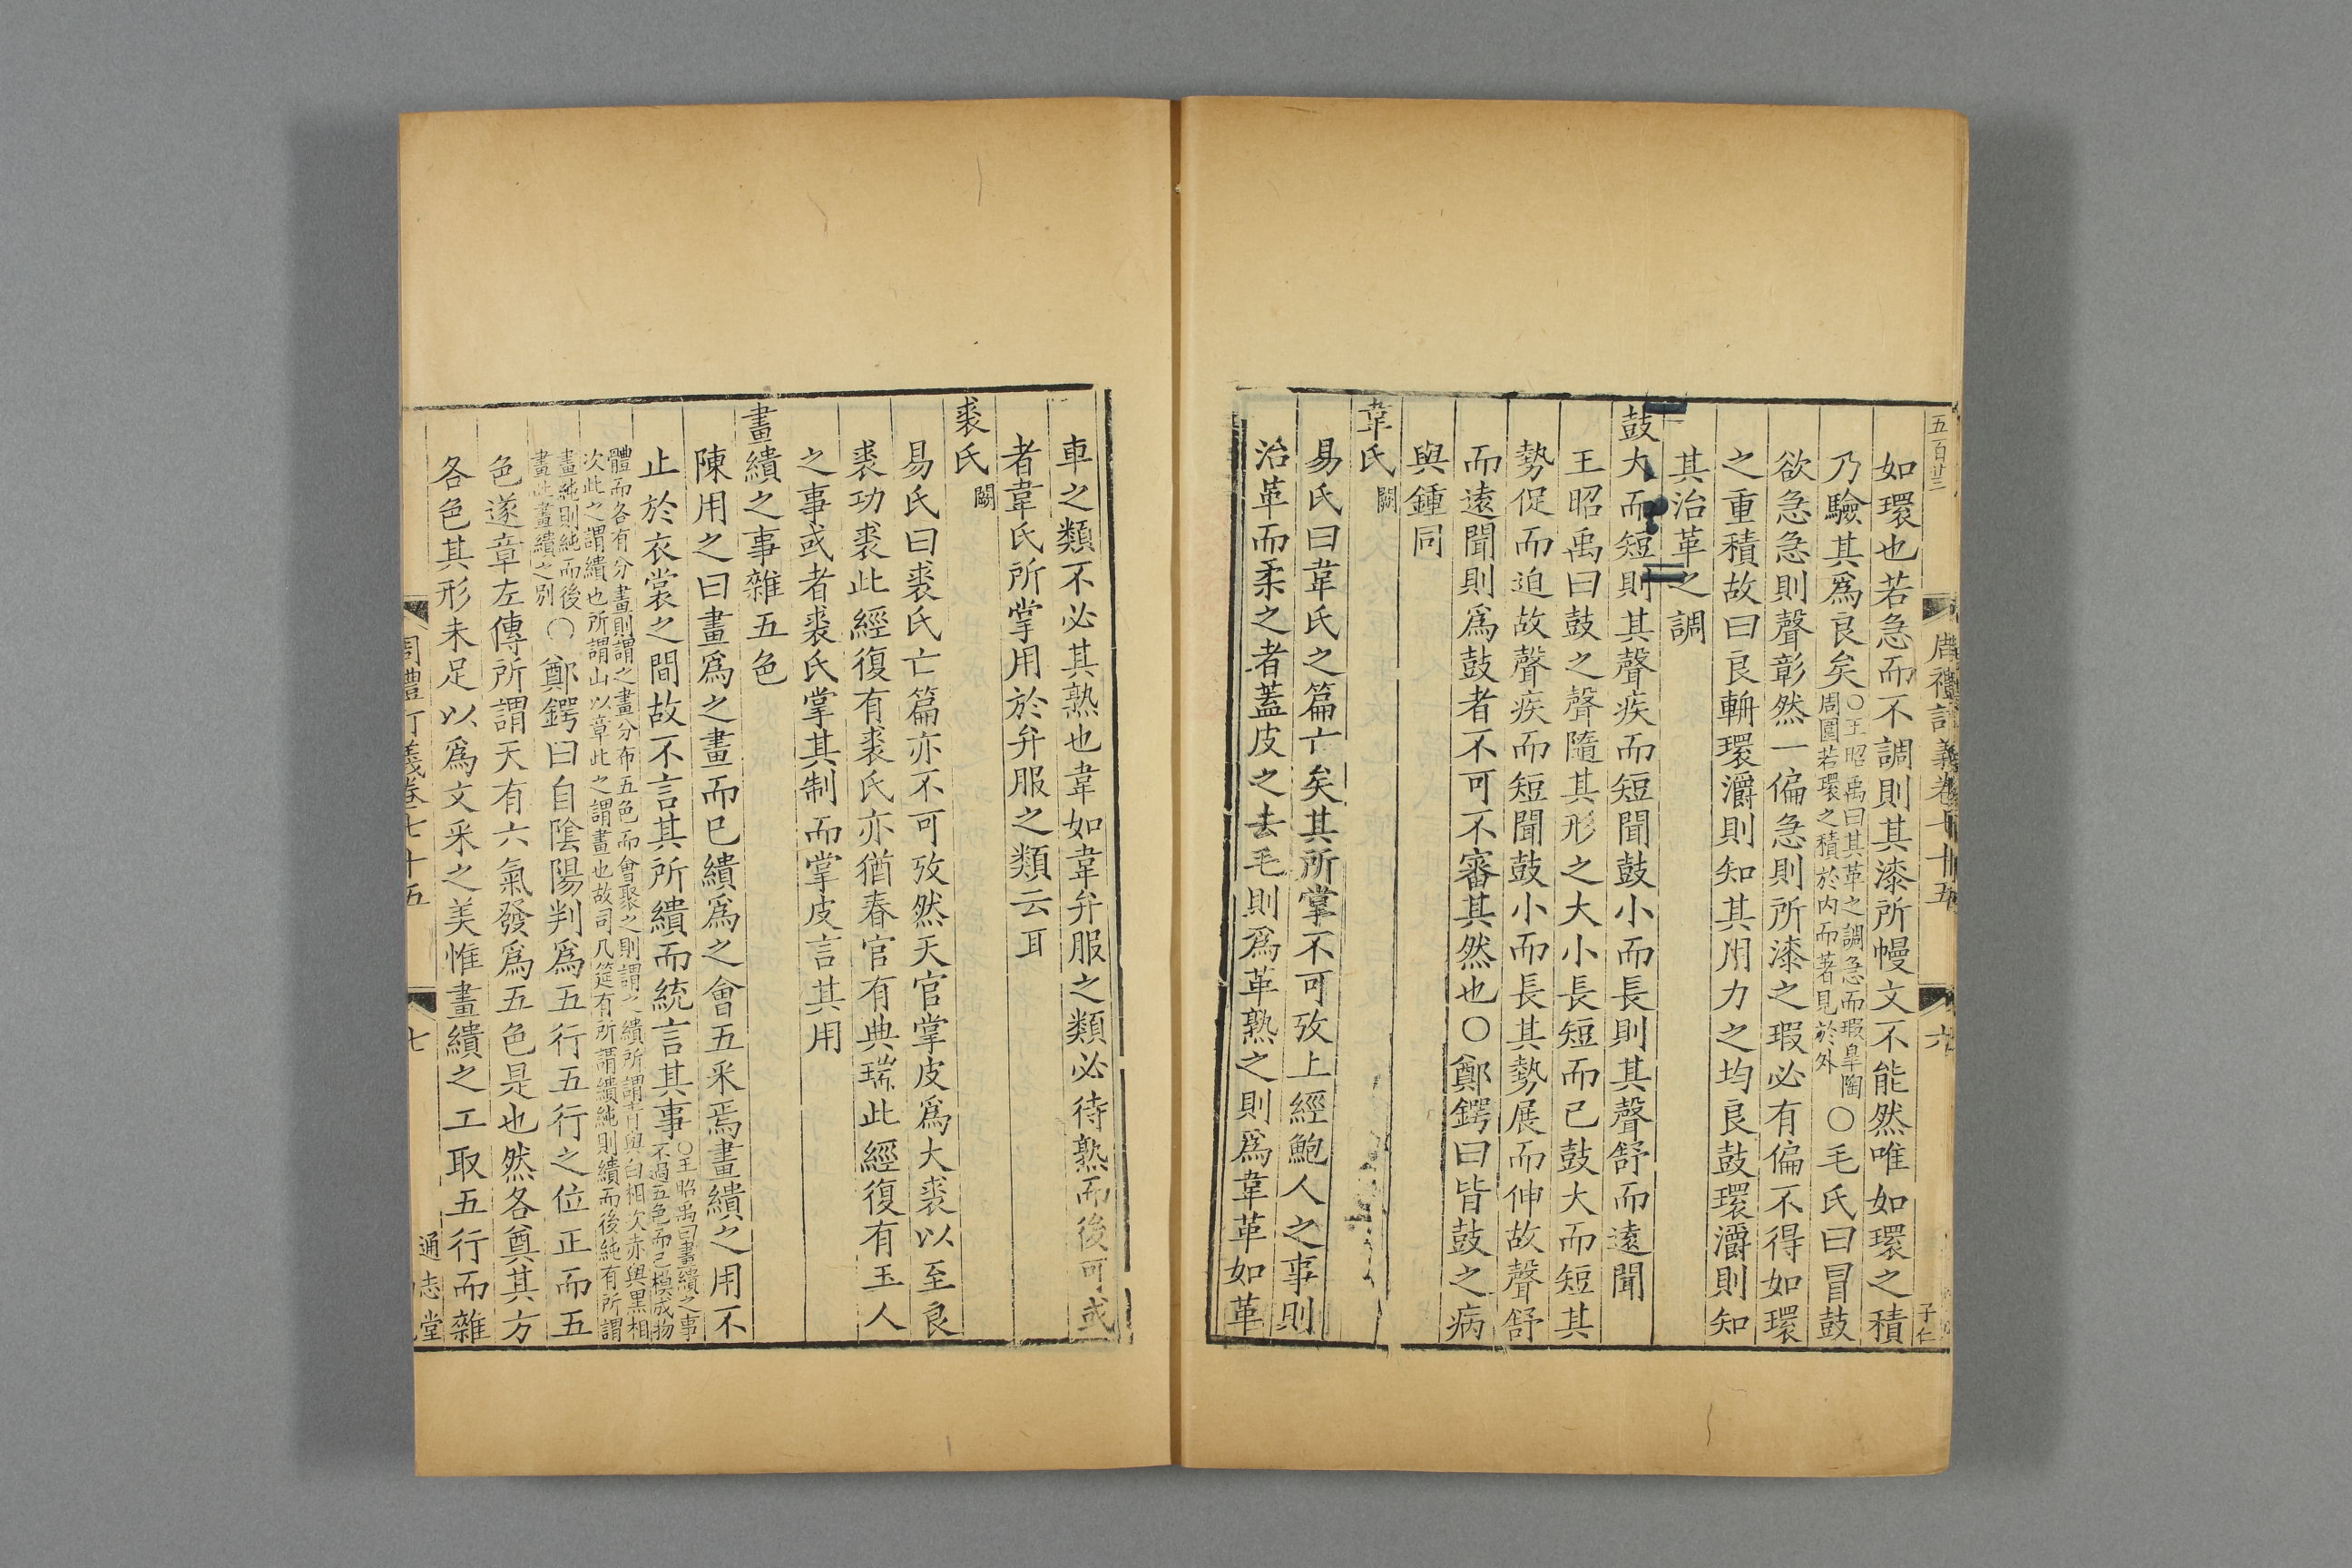 五百廿三
周禮訂義卷七十五
六
子仁
如環也若急而不調則其漆所幔文不能然唯如環之積
乃驗其爲良矣○王昭禹曰其革之調急而瑕臯陶周圍若環之積於内而著見於外○毛氏曰冒鼓
欲急急則聲彰然一偏急則所漆之瑕必有偏不得如環
之重積故曰良輈環灂則知其用力之均良鼓環灂則知
其治革之調
鼓大而短則其聲疾而短聞鼓小而長則其聲舒而遠聞
王昭禹曰鼓之聲隨其形之大小長短而已鼓大而短其
勢促而迫故聲疾而短聞鼓小而長其勢展而伸故聲舒
而遠聞則爲鼓者不可不審其然也○鄭鍔曰皆鼓之病
與鍾同
韋氏闕
易氏曰韋氏之篇亡矣其所掌不可攷上經鮑人之事則
治革而柔之者蓋皮之去毛則爲革熟之則爲韋革如革
車之類不必其熟也韋如韋弁服之類必待熟而後可或
者韋氏所掌用於弁服之類云耳
裘氏闕
易氏曰裘氏亡篇亦不可攷然天官掌皮爲大裘以至良
裘功裘此經復有裘氏亦猶春官有典瑞此經復有玉人
之事或者裘氏掌其制而掌皮言其用
畫繢之事雜五色
陳用之曰畫爲之畫而已繢爲之會五采焉畫繢之用不
止於衣裳之間故不言其所繢而統言其事○王昭禹曰畫繢之事不過五色而已模成物
體而各有分畫則謂之畫分布五色而會聚之則謂之繢所謂青與白相次赤與黑相
次此之謂繢也所謂山以章此之謂畫也故司几筵有所謂繢純則繢而後純有所謂
畫純則純而後畫此畫繢之別○鄭鍔曰自陰陽判爲五行五行之位正而五
色遂章左傳所謂天有六氣發爲五色是也然各奠其方
各色其形未足以爲文采之美惟畫繢之工取五行而雜
周禮訂義卷七十五
七
通志堂